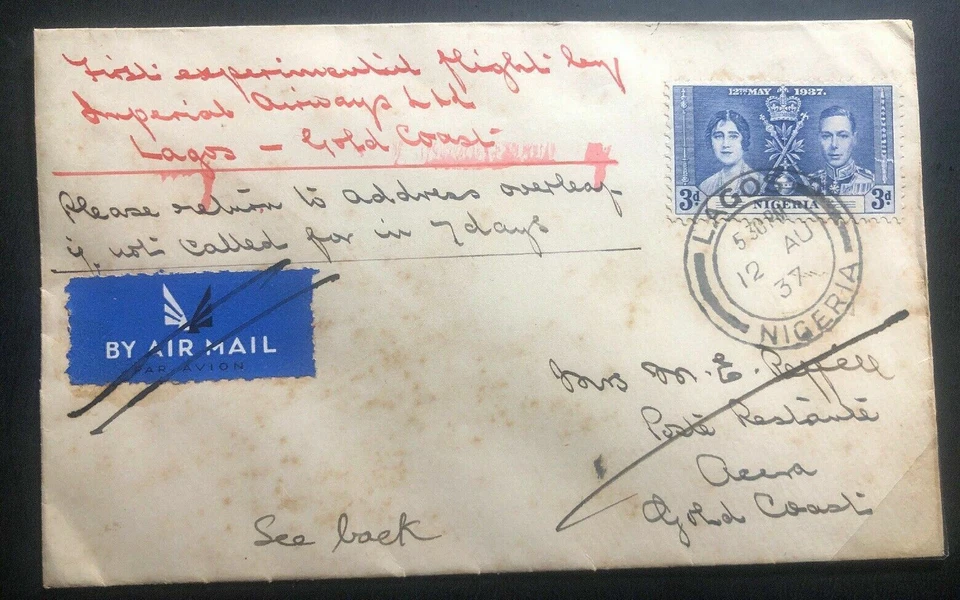 First experimental flight by
Imperial Airways Ltd
Lagos - Gold Coast
Please return to address overleaf
if not called for in 7 days
12TH MAY 1937.
3d NIGERIA 3d
LAGOS
5 30 PM
12 AU
37
NIGERIA
BY AIR MAIL
PAR AVION
Mrs M. E.
Poste Restante
Accra
Gold Coast
See back